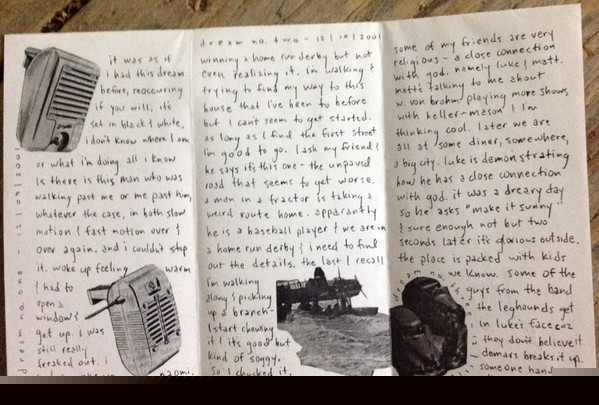 it was as if
i had this dream
before, reoccuring
if you will. it's
set in black & white,
i don't know where i am
or what i'm doing all i know
is there is this man who was
walking past me or past him,
whatever the case, in both slow
motion & fast motion over &
over again. and i couldn't stop
it. woke up feeling warm
& had to
open a
window &
get up. i was
still really
freaked out. i
naomi.
dream no. one - 12/08/2001
dream no. two - 12/10/2001
winning a home run derby but not
even realizing it. i'm walking &
trying to find my way to this
house that i've been to before
but i can't seem to get started.
as long as i find the first street
i'm good to go. i ask my friend &
he says it's this one - the unpaved
road that seems to get worse.
a man in a tractor is taking a
weird route home. apparantly
he is a baseball player & we are in
a home run derby & i need to find
out the details. the last i recall
i'm walking
along & picking
up a branch-
i start chewing
it! it's good but
kind of soggy.
so i chucked it.
some of my friends are very
religious - a close connection
with god. namely luke & matt.
matt's talking to me about
w. von brohm playing more shows
with keller-mason & i'm
thinking cool. later we are
all at some diner, somewhere,
a big city. luke is demonstrating
how he has a close connection
with god. it was a dreary day
so he asks "make it sunny"
& sure enough not but two
seconds later it's glorious outside.
the place is packed with kids
we know. some of the
guys from the band
the leghounds get
in luke's face cuz
they don't believe it
demars breaks it up.
someone hand
dream no.